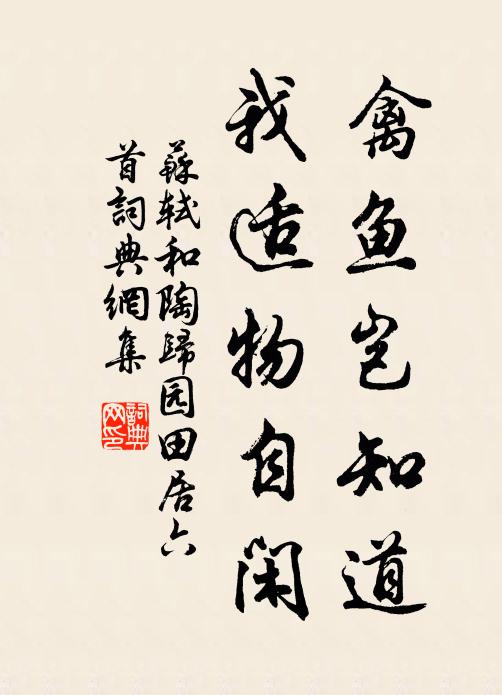 禽鱼岂知道
我适物自闲
蘇轼和陶歸园田居六
首詞典網集
詞典
网印